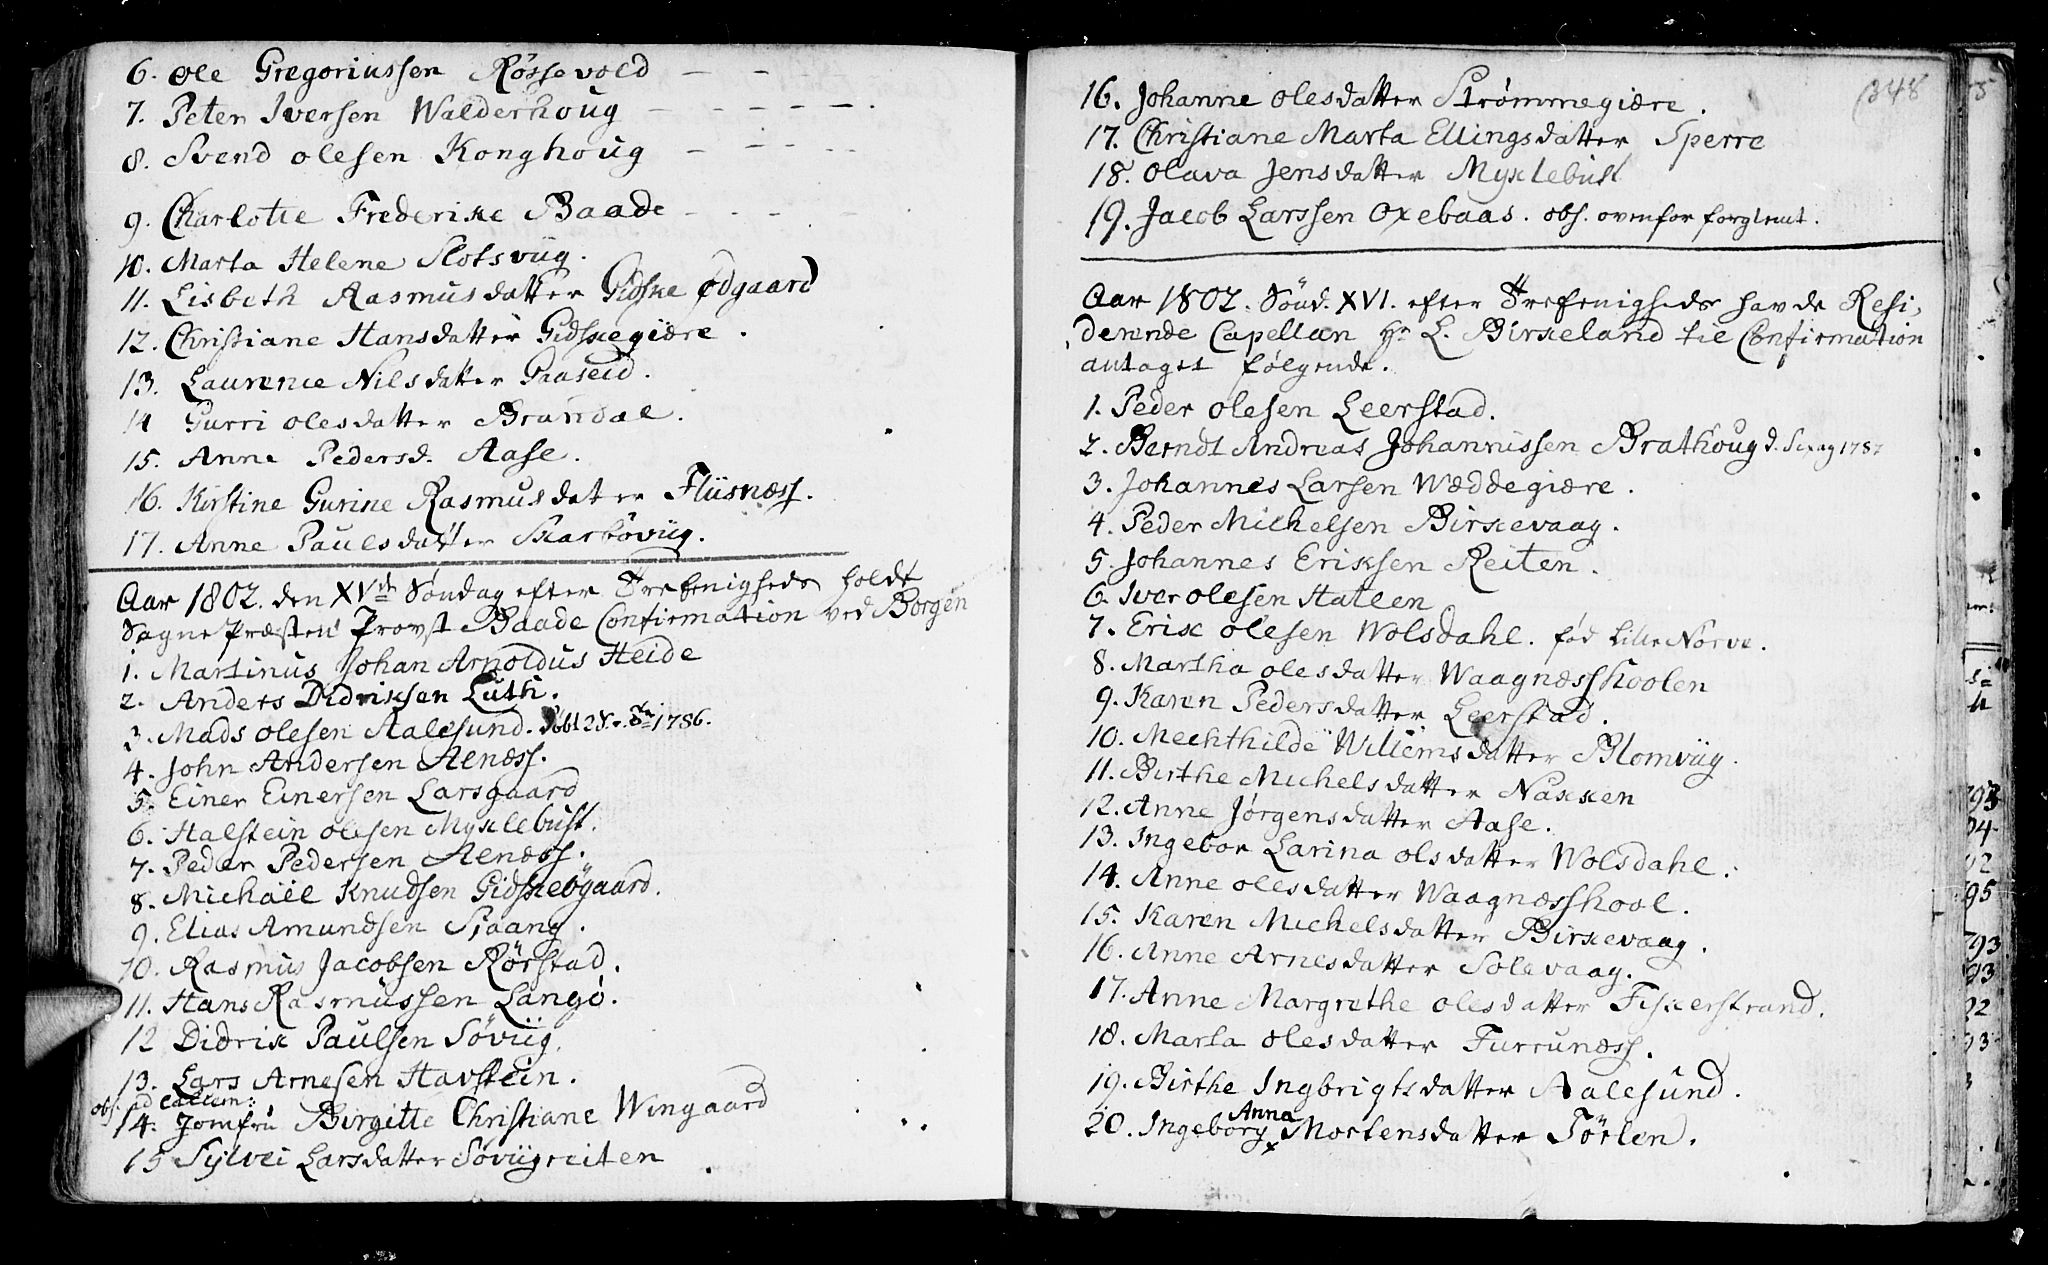 6. Ole Gregoriussen Røssevold — —
7. Peter Iversen Walderhoug — — — — — .
8. Svend Olesen Konghoug — — — — —
9. Charlotte Frederike Baade — — — —
10. Marta Helene Slotsviig.
11. Lisbeth Aasmusdatter Gidske Ødgaard
12. Christiane Hansdatter Gidskegiære .
13. Laurence Nilsdatter Gaaseid.
14 Gurri Olesdatter Brandal.
15. Anne Pedersd. Aase.
16. Kirstine Gurine Rasmusdatter Fliisnæss.
17. Anne Paulsdatter Skarbøviig.
Aar 1802. den XVde Søndag efter Trefenigheds holdt
Sogne Præsten Provst Baade Confirmation ved Borgen
1. Martinus Johan Arnoldus Heide
2. Anders Didriksen Luth.
3. Mads Olesen Aalesund. Døbt 28. 1786.
4. John Andersen Alnæss.
5. Einer Einersen Larsgaard
6. Halstein Olesen Myklebust.
7. Peder Pedersen Alnæss.
8. Michael Knudsen Gidskebøgaard.
9. Elias Amundsen Siaang.
10. Rasmus Jacobsen Rørstad.
11. Hans Rasmussen Langø.
12 Didrik Paulsen Søviig.
13. Lars Arnesen Havstein.
obs. ad calcem:
14. Jomfru Birgitte Christiane Wingaard
15 Sylvei Larsdatter Søviigreiten
348
16. Johanne Olesdatter Strømmegiære.
17. Christiane Marta Ellingsdatter Sperre
18. Olava Jensdatter Myklebust
19. Jacob Larssen Oxebaas. obs. ovenfor forglemt.
Aar 1802. Sønd. XVI. efter Trefenigheds havde Resi-
derende Capellan Hr L. Birkeland til Confirmation
antaget følgende.
1. Peder Olesen Leerstad.
2. Berndt Andreas Johannissen Brathoug d. 1787
3. Johannes Larsen Wæddegiære.
4. Peder Michelsen Birkevaag.
5. Johannes Eriksen Reiten.
6. Iver Olesen Hatlen
7. Erik Olesen Wolsdahl. fød Lille Nørve.
8. Martha Olesdatter Waagnæsskoolen
9. Karen Pedersdatter Leerstad.
10. Mechthilde Willemsdatter Blomviig.
11. Birthe Michelsdatter Nakken
12. Anne Jørgensdatter Aase.
13. Ingebor Larina Olsdatter Wolsdahl.
14. Anne Olesdatter Waagnæsskool.
15. Karen Michelsdatter Birkevaag.
16. Anne Arnesdatter Solevaag.
17. Anne Margrethe Olesdatter Fiskerstrand.
18. Marta Olesdatter Furrunæss.
19. Birthe Ingbrigtsdatter Aalesund.
Anna
20. Ingeborg x Mortensdatter Tørlen.